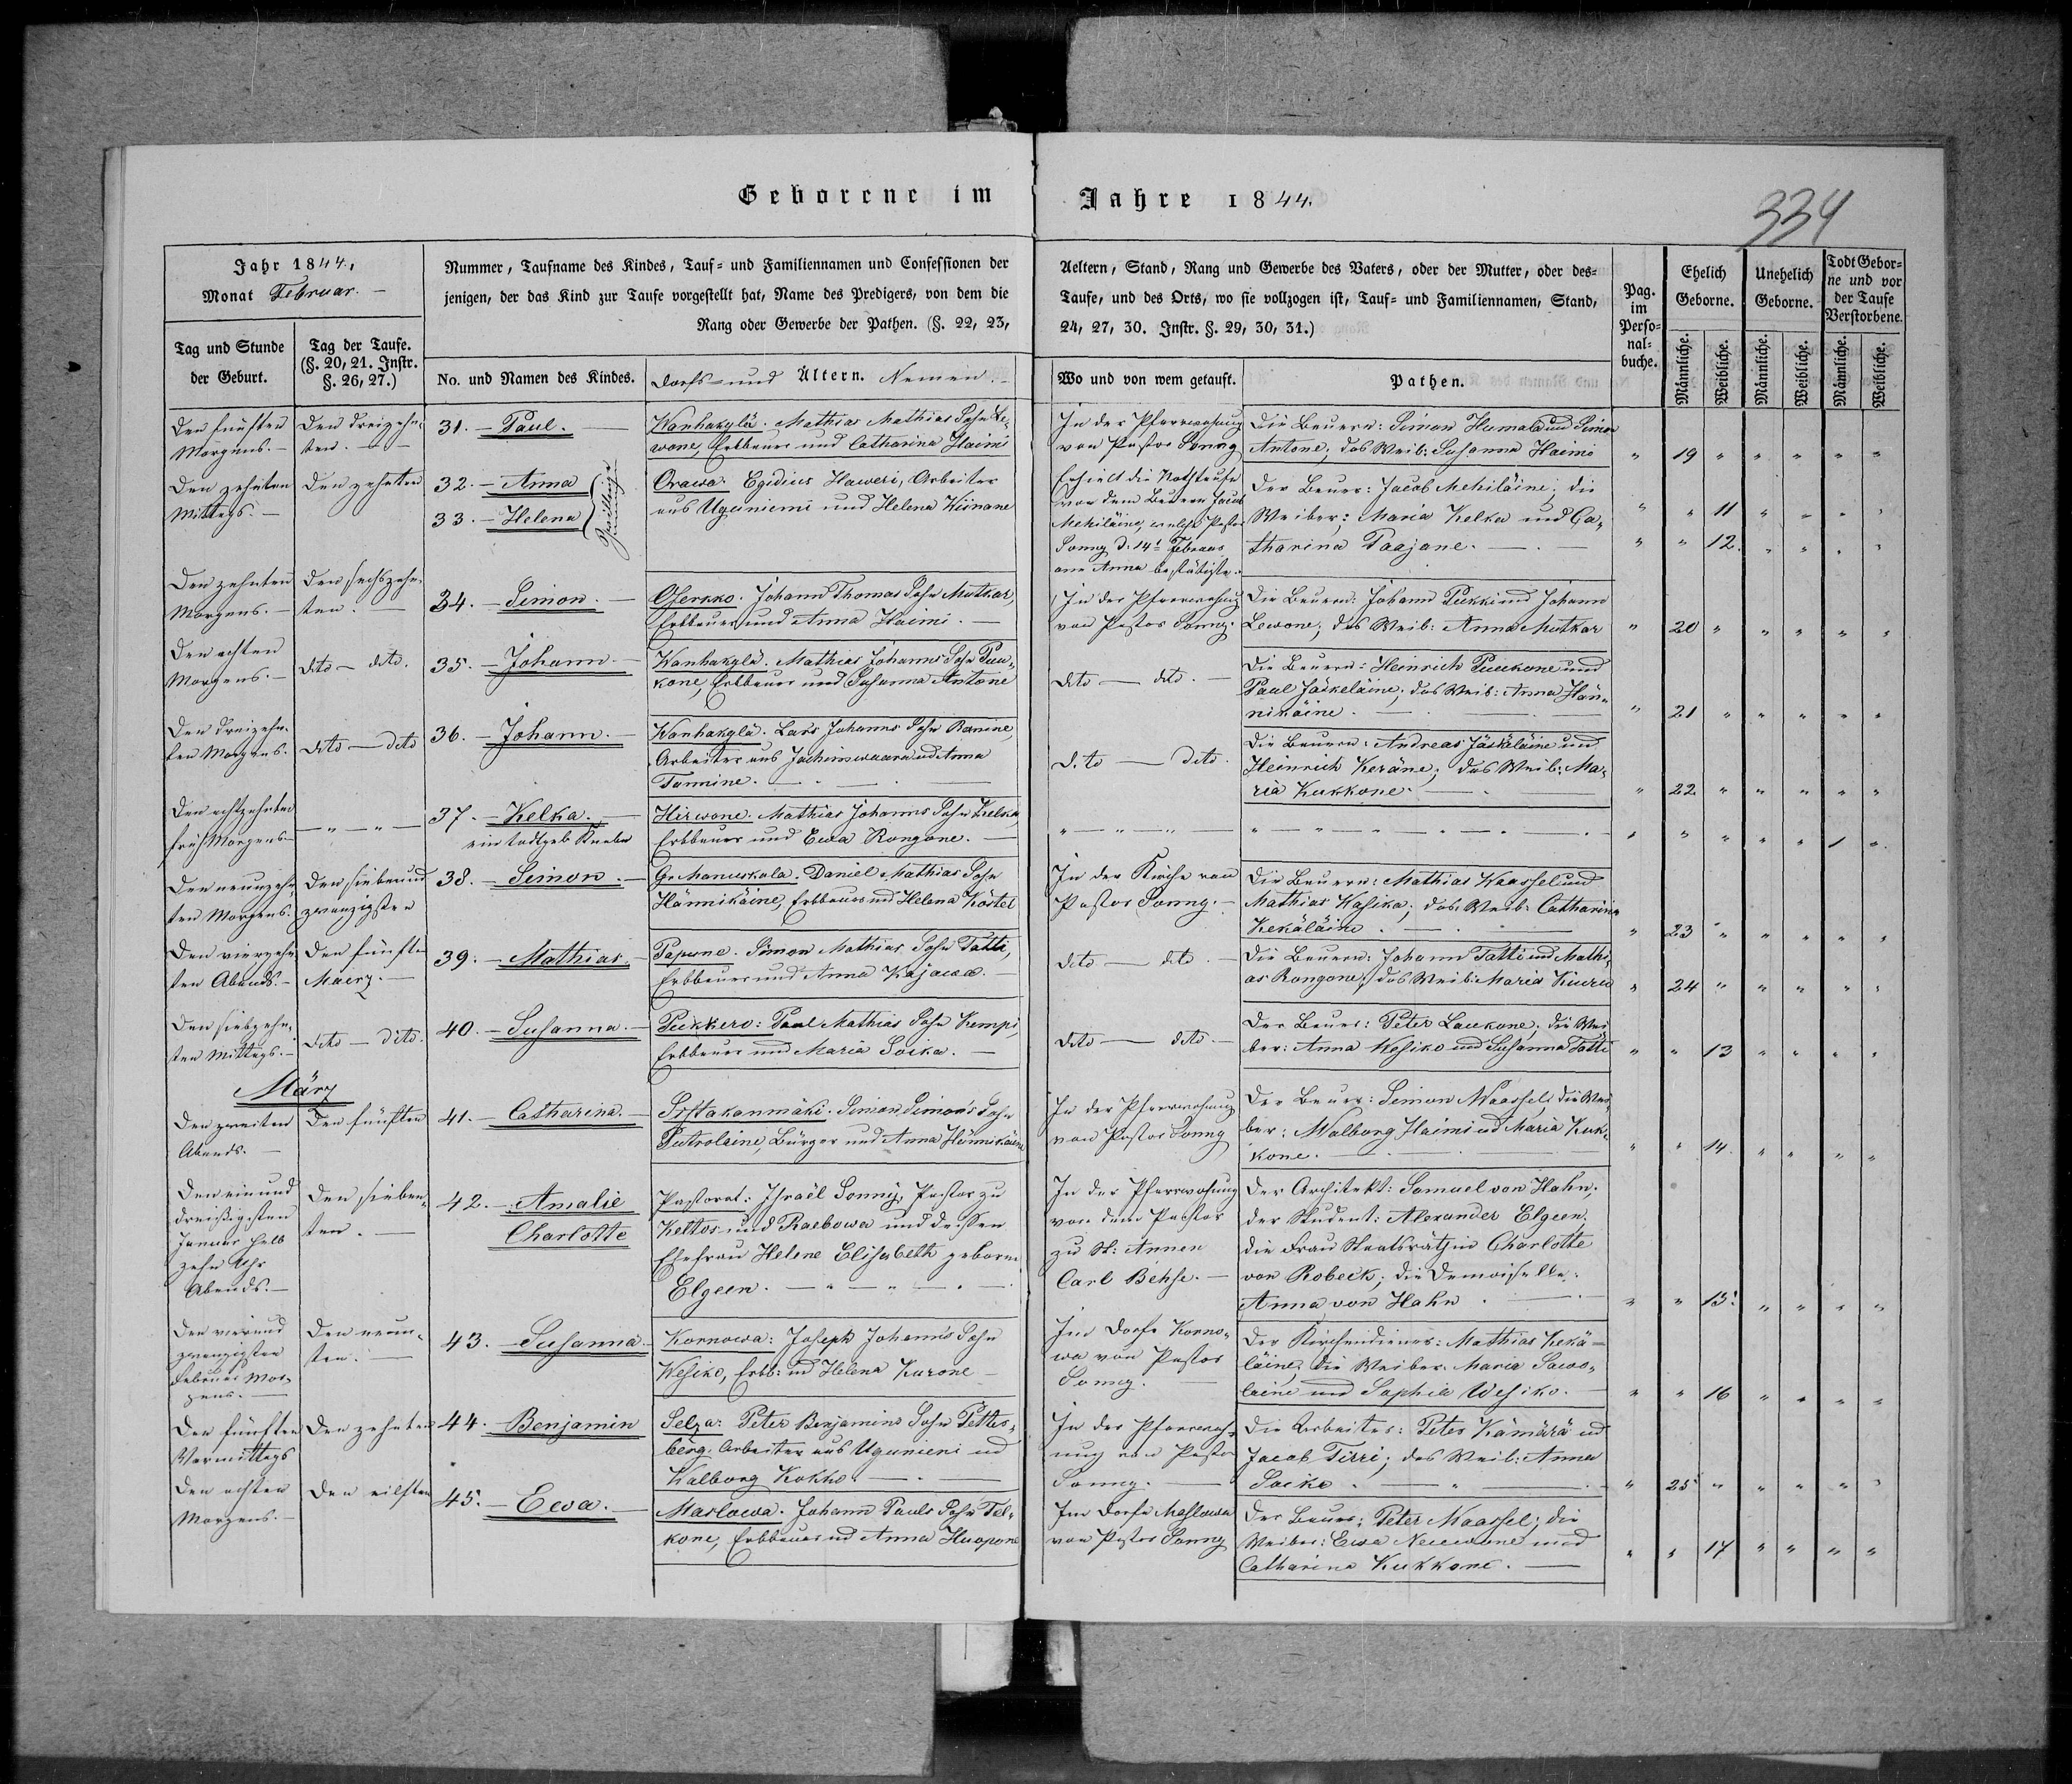 Geborene im Jahre 1844.
334
Jahr 1844.
Monat Februar.
Tag und Stunde
der Geburt.
Tag der Taufe.
(§. 20, 21. Instr.
§. 26, 27.)
Nummer, Taufname des Kindes, Tauf- und Familiennamen und Confessionen der
jenigen, der das Kind zur Taufe vorgestellt hat, Name des Predigers, von dem die
Rang oder Gewerbe der Pathen. (§. 22, 23,
No. und Namen des Kindes.
Dorfs- und Ältern. Namen.
Aeltern, Stand, Rang und Gewerbe des Vaters, oder der Mutter, oder des-
Taufe, und des Orts, wo sie vollzogen ist, Tauf- und Familiennamen, Stand,
24, 27, 30. Instr. §. 29, 30, 31.)
Wo und von wem getauft.
Pathen.
Pag.
im
Perso-
nal-
buche.
Ehelich
Geborne.
Unehelich
Geborne.
Todt Gebor-
ne und vor
der Taufe
Verstorbene.
Männliche.
Weibliche.
Männliche.
Weibliche.
Männliche.
Weibliche.
Den fünften
Morgens.
Den dreizehn-
ten.
31. Paul.
Wanhakylä. Mathias Mathias Sohn Le-
wone, Erbbauer und Catharina Haimi
In der Pfarrwohnung
von Pastor Sonny
Die Bauern: Simon Humala und Simon
Antone, das Weib: Susanna Haimo
19
Den zehnten
Mittags.
Den zehnten
32. Anna
33. Helena
Zwillinge
Orawa. Egidius Haweri, Arbeiter
aus Uguniemi und Helena Kiinane
Erhielt die Nothtaufe
von dem Bauern Jacob
Mehiläine, welche Pastor
Sonny d. 14t Februar
an Anna bestätigte.
Der Bauer: Jacob Mehiläine; die
Weiber: Maria Kelka und Ca-
tharina Paajane.
11
12.
Den zehnten
Morgens.
Den sechszehn-
ten.
34. Simon.
Oserkko. Johann Thomas Sohn Mutkar,
Erbbauer und Anna Haimi.
In der Pfarrwohnung
von Pastor Sonny.
Die Bauern: Johann Pukki und Johann
Lewone; das Weib: Anna Mutkar
20
Den achten
Morgens.
dito — dito.
35. Johann.
Wanhakylä. Mathias Johanns Sohn Puu-
kone, Erbbauer und Susanna Antone
dito — dito.
Die Bauern: Heinrich Puukone und
Paul Jäskeläine; das Weib: Anna Hän-
nikäine.
21
Den dreizehn-
ten Morgens.
dito — dito
36. Johann.
Wanhakylä. Lars Johanns Sohn Ranine,
Arbeiter aus Jachimswaara und Anna
Tannine.
dito — dito.
Die Bauern: Andreas Jäskeläine und
Heinrich Keräne; das Weib: Ma-
ria Kukkone.
22
Den achtzehnten
früh Morgens.
37. Kelka.
ein todtgeb. Knabe
Hirwone. Mathias Johanns Sohn Kelka,
Erbbauer und Ewa Rongone.
1
Den neunzehn-
ten Morgens.
Den siebenund
zwanzigsten
38. Simon.
Gr. Manuskala. Daniel Mathias Sohn
Hännikäine, Erbbauer und Helena Köstel
In der Kirche von
Pastor Sonny.
Die Bauern: Mathias Waassel und
Mathias Kasika; das Weib: Catharina
Kekäläine.
23
Den vierzehn-
ten Abends.
Den fünften
Maerz.
39. Mathias.
Papune. Simon Mathias Sohn Tatti,
Erbbauer und Anna Kajawa.
dito — dito.
Die Bauern: Johann Tatti und Mathi-
as Rongone; das Weib: Maria Kiuru
24
Den siebzehn-
ten Mittags.
dito — dito.
40. Susanna.
Pukkero: Paul Mathias Sohn Kempi,
Erbbauer und Maria Soika.
dito — dito.
Der Bauer: Peter Laukone, die Wei
ber: Anna Wesiko und Susanna Tatti
13
März
Den zweiten
Abends.
Den fünften
41. Catharina.
Simon Simons Sohn
Putrolaine, Bürger und Anna Hännikäine
In der Pfarrwohnung
von Pastor Sonny
Der Bauer: Simon Waassel, die Wei-
ber: Walborg Haimi und Maria Kuk-
kone.
14.
Den ein und
dreißigsten
Januar halb
zehn Uhr
Abends.
Den sieben-
ten.
42. Amalie
Charlotte
Pastorat: Israël Sonny, Pastor zu
Keltos und Raebowa und dessen
Ehefrau Helene Elisabeth geborne
Elgeen.
In der Pfarrwohnung
von dem Pastor
zu St: Annen
Carl Behse.
Der Architekt: Samuel von Hahn;
der Student: Alexander Elgeen,
die Frau Staatsräthin Charlotte
von Robeck; die Demoiselle:
Anna von Hahn.
15.
Den vierund
zwanzigsten
Februar Mor-
gens.
Den neun-
ten.
43. Susanna.
Kornowa: Joseph Johanns Sohn
Wesiko, Erbb: und Helena Kurone
Im Dorfe Korno-
wa von Pastor
Sonny.
Der Kirchendiener: Mathias Kekä-
läine, die Weiber: Maria Sawo-
laine und Sophia Wesiko.
16
Den fünften
Vormittags
Den zehnten
44. Benjamin
Selza: Peter Benjamins Sohn Petter-
berg, Arbeiter aus Ugunieni und
Walborg Kokko.
In der Pfarrwoh-
nung von Pastor
Sonny.
Die Arbeiter: Peter Kämärä und
Jacob Tirri; das Weib: Anna
Soika.
25
Den achten
Morgens.
Den eilften
45. Ewa.
Maslowa. Johann Pauls Sohn Tel-
kone, Erbbauer und Anna Huopone
Im Dorfe Maslowa
von Pastor Sonny
Der Bauer: Peter Waassel; die
Weiber: Ewa Neuwone und
Catharina Kukkone.
17